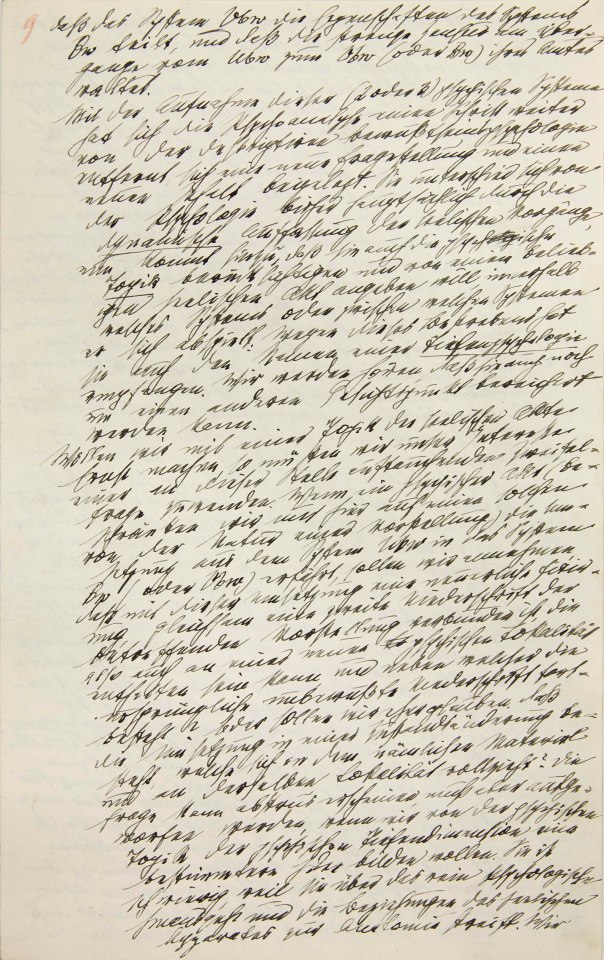 9
daß das System Vbw die Eigenschaften des Systems
Bw teilt, und daß die strenge Zensur am Über-
gange vom Ubw zum Vbw (oder Bw) ihres Amtes
waltet.
Mit der Aufnahme dieser (2 oder 3) psychischen Systeme
hat sich die Psychoanalyse einen Schritt weiter
von der deskriptiven Bewußtseinspsychologie
entfernt sich eine neue Fragestellung und einen
neuen Inhalt beigelegt. Sie unterschied sich von
der Psychologie bisher hauptsächlich durch die
dynamische Auffassung der seelischen Vorgänge,
nun kommt hinzu, daß sie auch die psychische
Topik berücksichtigen und von einem belieb-
igen seelischen Akt angeben will innerhalb
welches Systems oder zwischen welchen Systemen
er sich abspielt. Wegen dieses Bestrebens hat
sie auch den Namen einer Tiefenpsychologie
empfangen. Wir werden hören daß sie auch noch
um einen anderen Gesichtspunkt bereichert
werden kann.
Wollen wir mit einer Topik der seelischen Akte
Ernst machen, so müssen wir unser Interesse
einer an dieser Stelle auftauchenden Zweifel-
frage zuwenden. Wenn ein psychischer Akt (be-
schränken wir uns hier auf einen solchen
von der Natur einer Vorstellung) die Um-
setzung aus dem System Ubw in das System
Bw (oder Vbw) erfährt, sollen wir annehmen
daß mit dieser Umsetzung eine neuerliche Fixie-
rung gleichsam eine zweite Niederschrift der
betreffenden Vorstellung verbunden ist die
also auch an einer neuen psychischen Lokalität
enthalten sein kann und neben welcher die
ursprüngliche unbewußte Niederschrift fort-
besteht? Oder sollen wir eher glauben, daß
die Umsetzung in einer Zustandsänderung be-
steht welche sich an dem nämlichen Material
und an derselben Lokalität vollzieht? Die
Frage kann abstrus erscheinen muß aber aufge-
worfen werden, wenn wir von der psychischen
Topik, der psychischen Tiefendimension eine
bestimmtere Idee bilden wollen. Sie ist
schwierig weil sie über das rein Psychologische
hinausgeht und die Beziehungen des seelischen
Apparates zur Anatomie streift. Wir